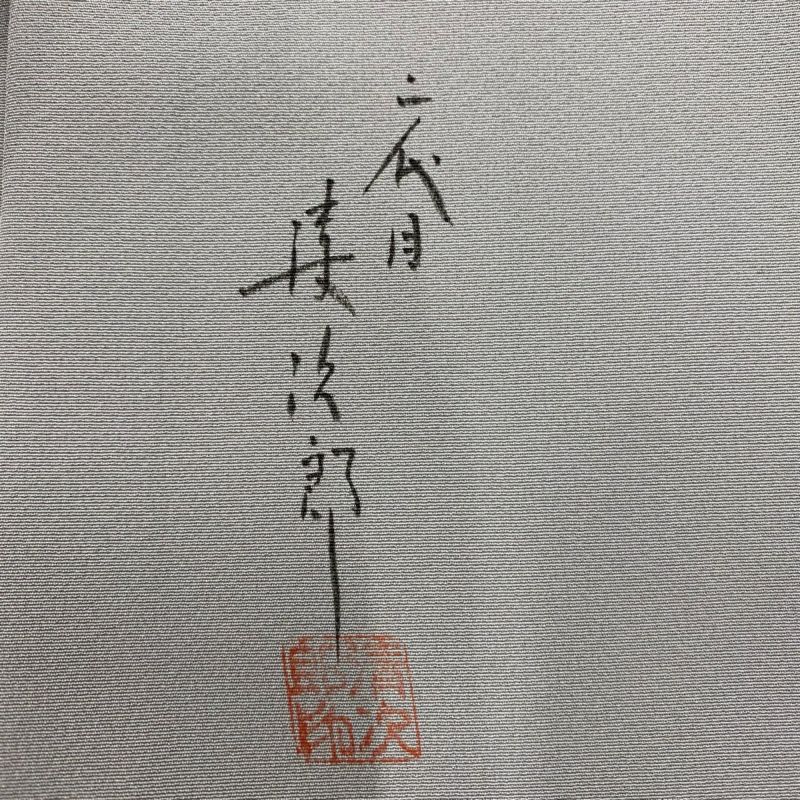 二代目
次郎
次
郎印